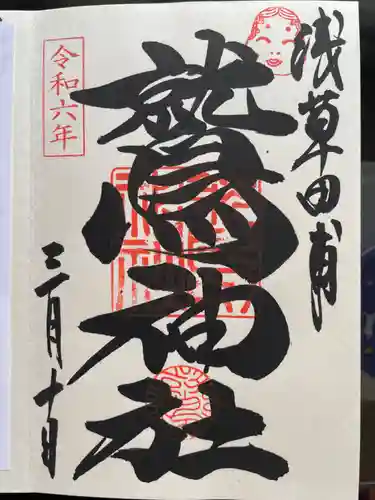 浅草田甫
鷲神社
令和六年
三月十日